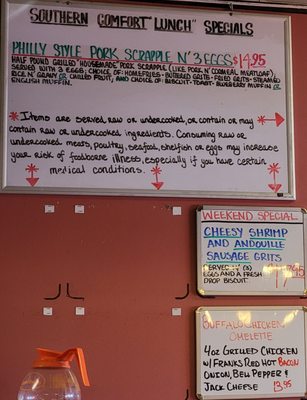 Southern Comfort "Lunch" Specials
Philly Style Pork Scrapple N' 3 Eggs $14.95
Half pound grilled "housemade" pork scrapple (like pork n' cornmeal meatloaf);
served with 3 eggs; choice of: homefries - buttered grits - fried grits - steamed
rice n' gravy or chilled fruit; and choice of: biscuit - toast - blueberry muffin or
english muffin.
* Items are served raw or undercooked, or contain or may
contain raw or undercooked ingredients. Consuming raw or
undercooked meats, poultry, seafood, shellfish or eggs may increase
your risk of foodborne illness, especially if you have certain
medical conditions.
Weekend Special
Cheesy Shrimp
and Andouille
Sausage Grits
Served w/ (2)
eggs and a fresh
drop biscuit
Buffalo Chicken
Omelette
4oz Grilled Chicken
w/ Franks Red Hot Bacon
Onion, Bell Pepper &
Jack Cheese 13.95